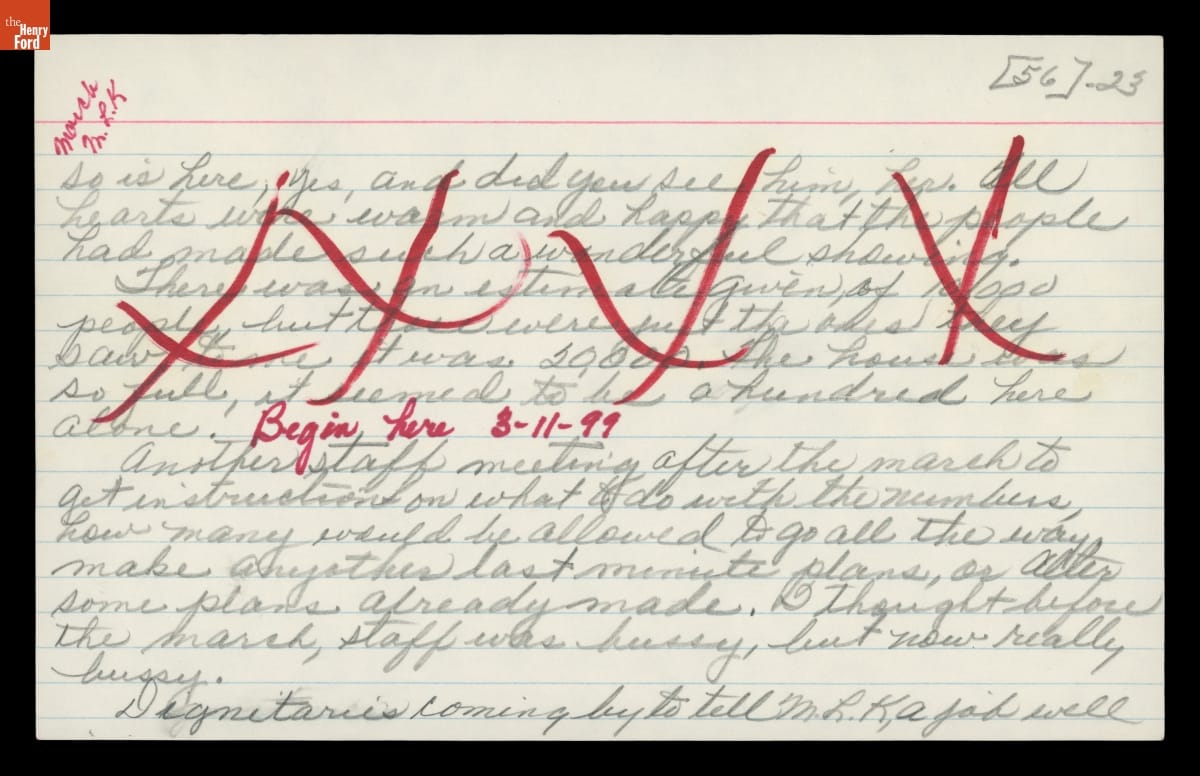 the
Henry
Ford
[56]-23
March
M.L.K
so is here, yes, and did you see him, her. All
hearts were warm and happy that the people
had made such a wonderful showing.
There was an estimate given, of 10,000
people, but those were just the ones they
saw, to me it was 20,000. The house was
so full, it seemed to be a hundred here
alone.
Begin here 3-11-99
Another staff meeting after the march to
get instructions on what to do with the numbers,
how many would be allowed to go all the way,
make anyother last minute plans, or alter
some plans already made. I thought before
the march, staff was bussy, but now really
bussy.
Dignitaries coming by to tell M.L.K, a job well